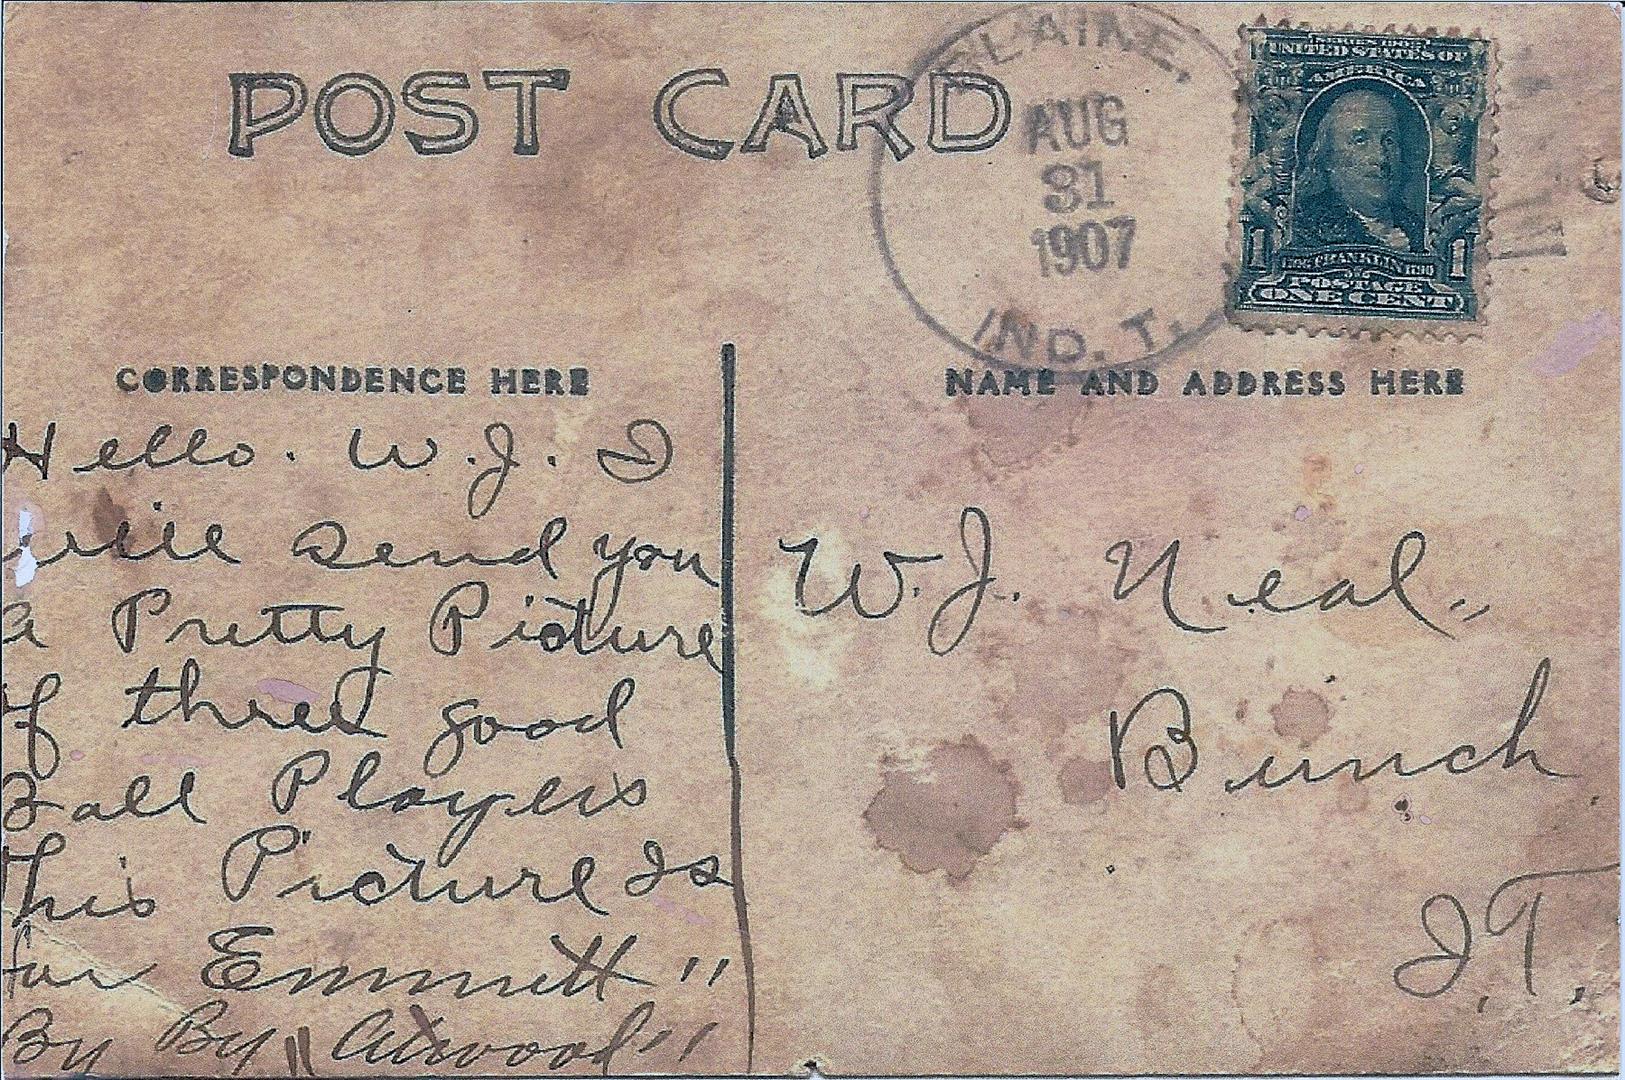 POST CARD
BLAINE,
AUG
31
1907
IND. T.
SERIES 1902
UNITED STATES OF
AMERICA
1 FRANKLIN 1
POSTAGE
ONE CENT
CORRESPONDENCE HERE
Hello. W.J. I
will send you
a Pretty Picture
of three good
Ball Players
This Picture Is
for Emmett"
By By " Atwood"
NAME AND ADDRESS HERE
W.J. Neal,,
Bunch
I.T.